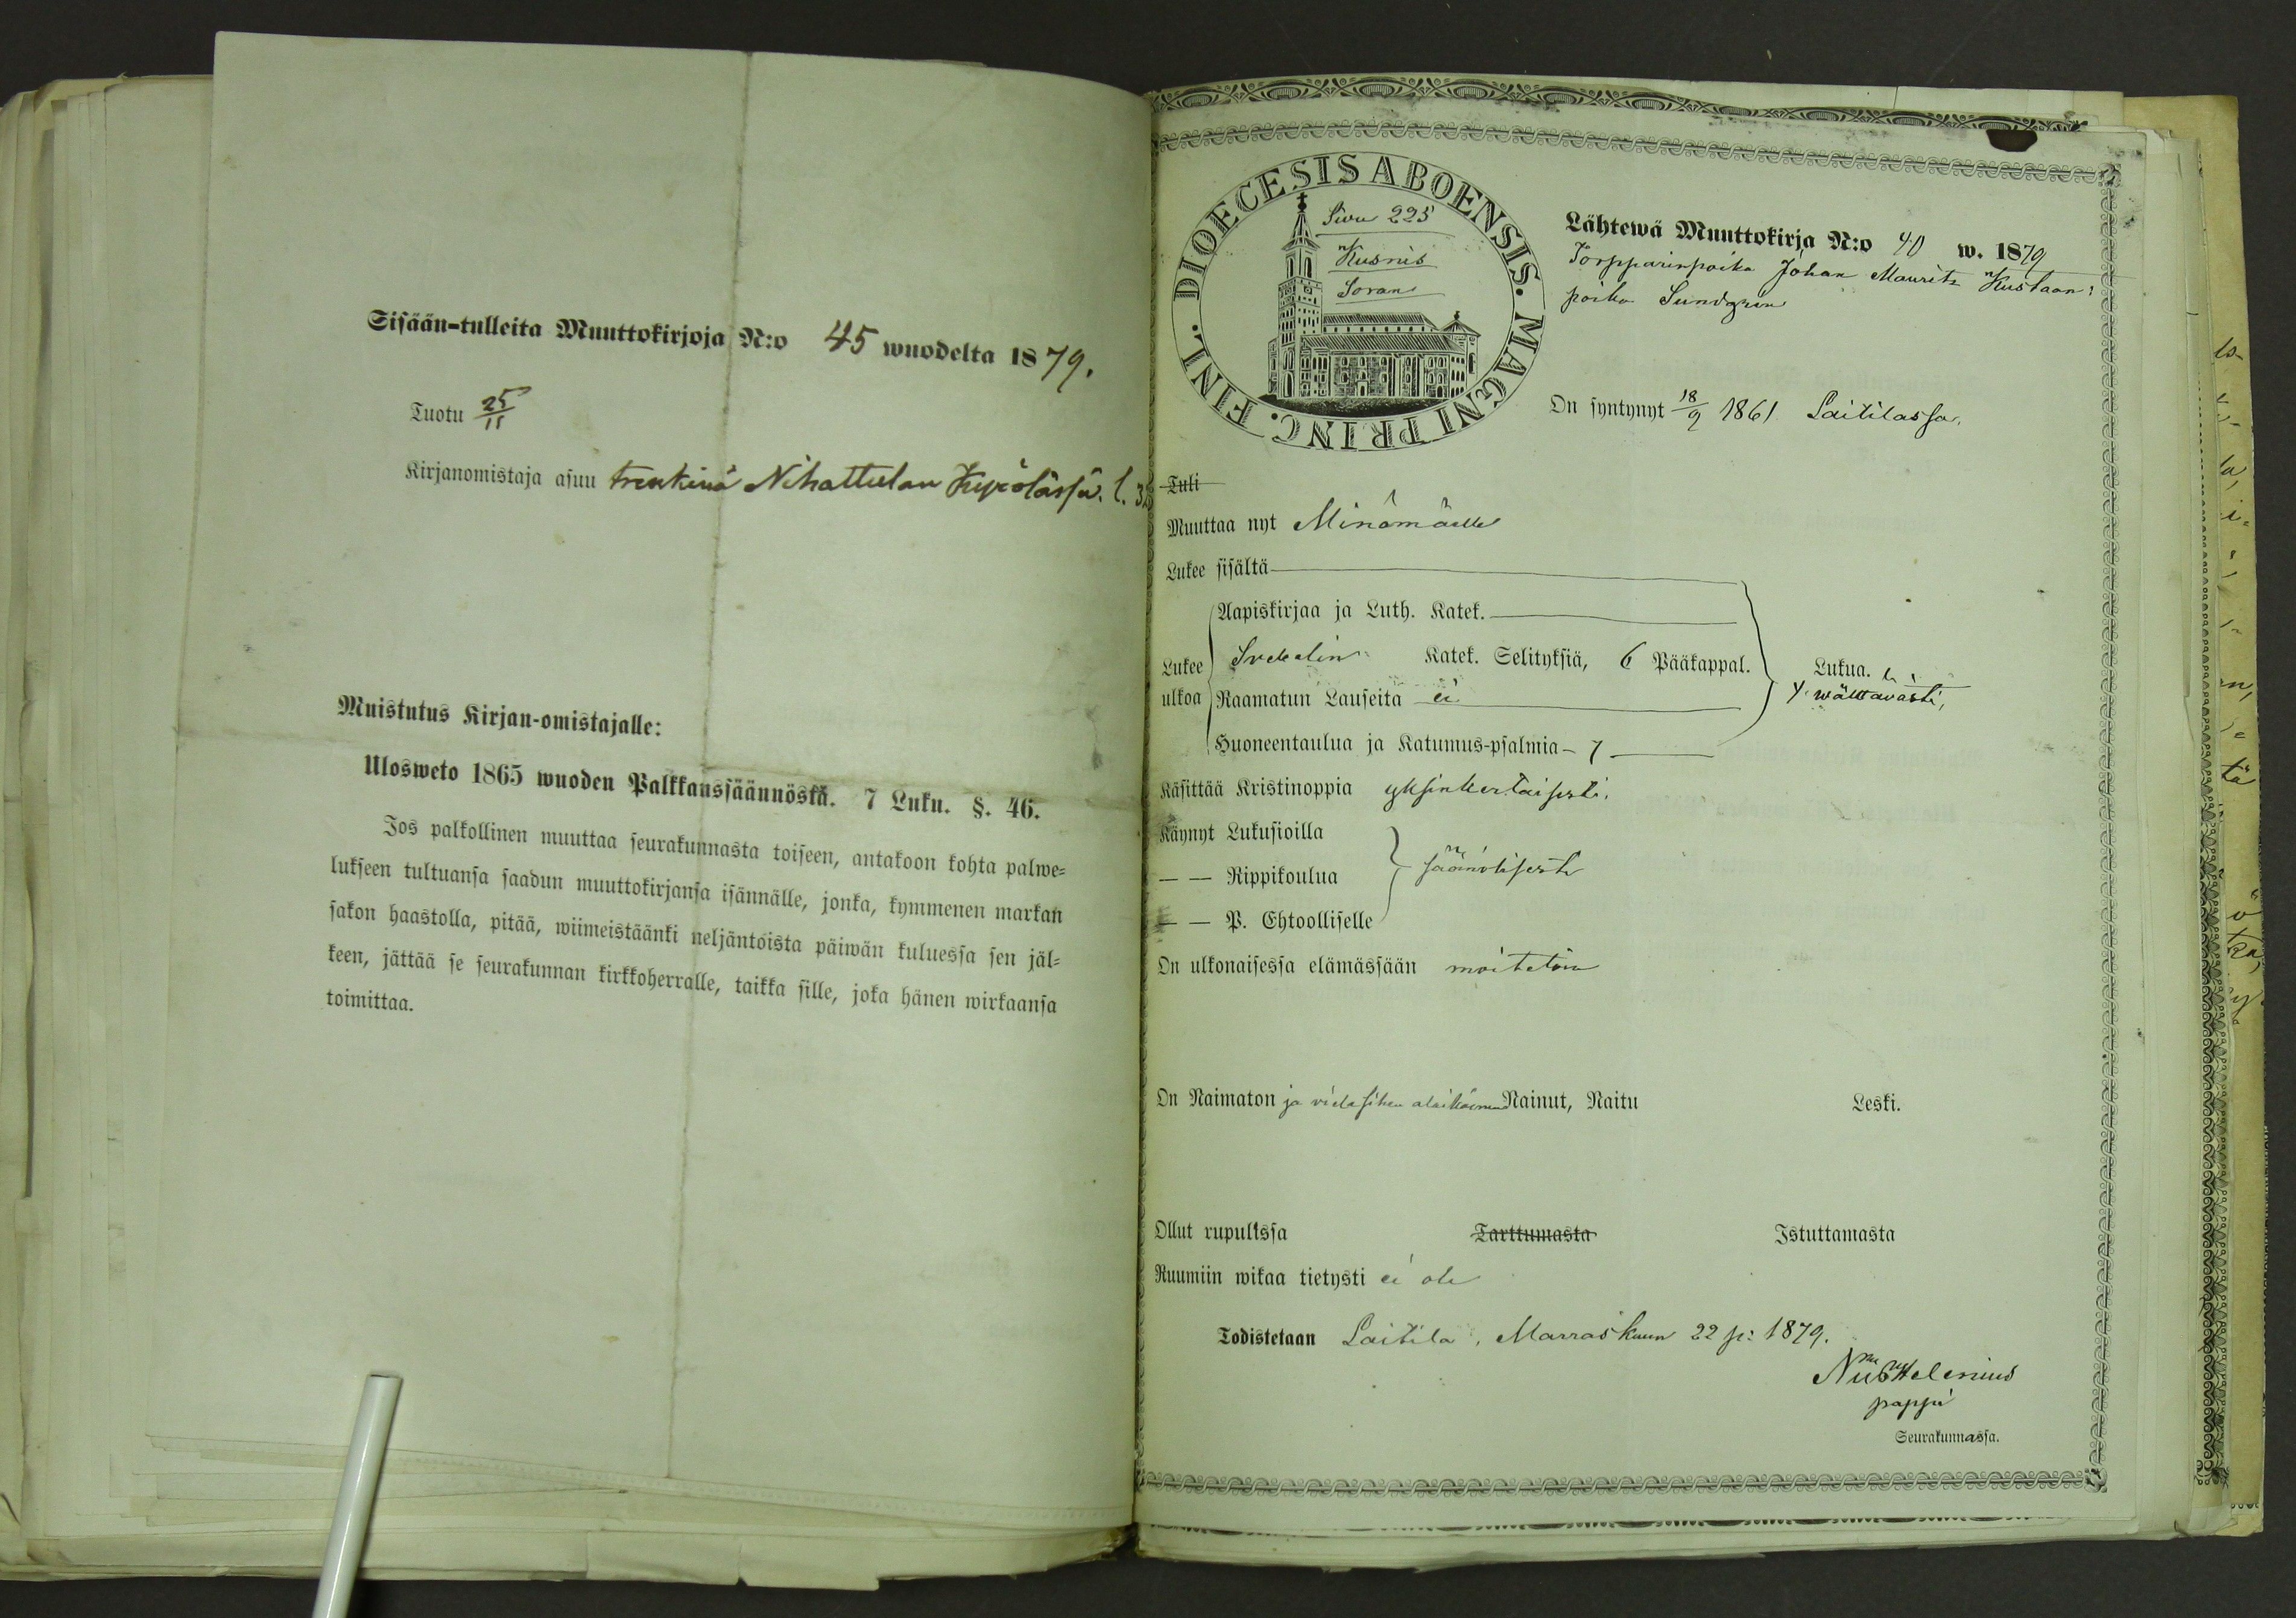 Sisään-tulleita Muuttokirjoja N:o 45 wuodelta 1879.
Tuotu 25/11
Kirjanomistaja asuu trenkinä Nihattulan Kyrölässä. l. 35
Muistutus Kirjan-omistajalle:
Ulosweto 1865 wuoden Palkkaussäännöskä. 7 Luku. §. 46.
Jos palkollinen muuttaa seurakunnasta toiseen, antakoon kohta palwe=
lukseen tultuansa saadun muuttokirjansa isännälle, jonka, kymmenen markan
sakon haastolla, pitää, wiimeistäänki neljäntoista päiwän kuluessa sen jäl=
keen, jättää se seurakunnan kirkkoherralle, taikka sille, joka hänen wirkaansa
toimittaa.
DIOECESIS ABOENSIS. MAGNI PRINC. FINL.
Sivu 225
Kusnis
Soran
Lähtewä Muuttokirja N:o 40 w. 1879
Torpparinpoika Johan Maurits Kustaan:
poika Sundgren
On syntynyt 18/9 1861 Laitilassa.
Tuli
Muuttaa nyt Minämäelle
Lukee sisältä
Aapiskirjaa ja Luth. Katek.
Lukee ulkoa
Svebelin Katek. Selityksiä, 6 Pääkappal.
Lukua.
Raamatun Lauseita ei
wälttävästi,
Huoneentaulua ja Katumus-psalmia – 7
Käsittää Kristinoppia yksinkertaisesti.
Käynyt Lukusioilla
— — Rippikoulua säännölisesti
— — P. Ehtoolliselle
On ulkonaisessa elämässään moitetoin
On Naimaton ja vielä siihen alaikäinen Nainut, Naitu Leski.
Ollut rupulissa Tarttumasta Istuttamasta
Ruumiin wikaa tietysti ei ole
Todistetaan Laitila, Marraskuun 22 p: 1879.
Helenius
pappi
Seurakunnassa.